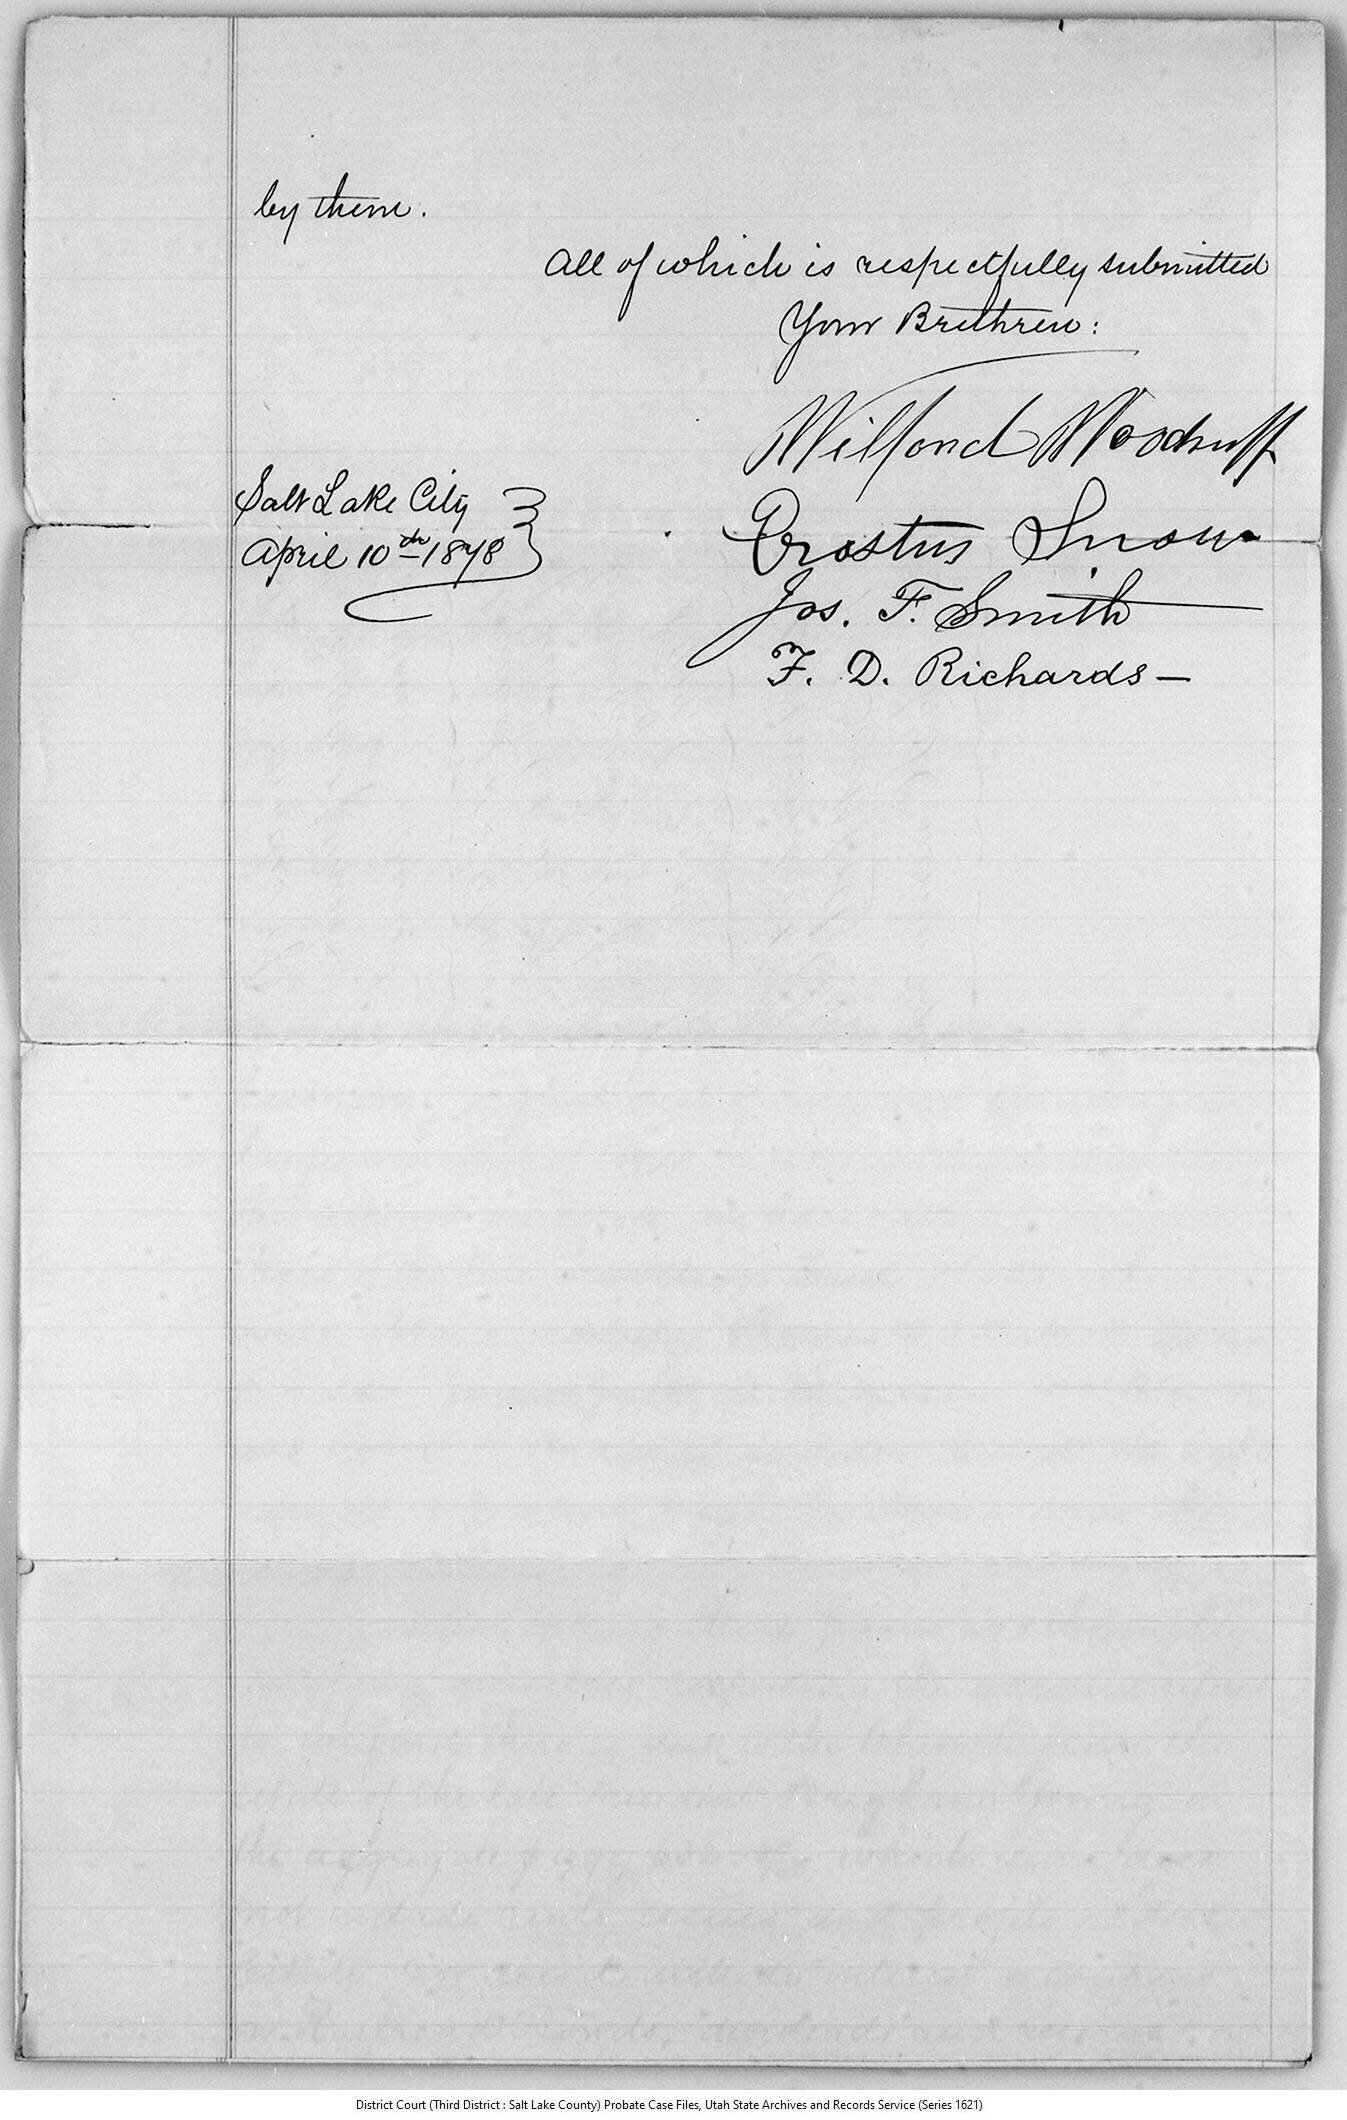 by them.
All of which is respectfully submitted
Your Brethren:
Wilford Woodruff
Salt Lake City
April 10th 1878
Erastus Snow
Jos. F. Smith
F. D. Richards—
District Court (Third District : Salt Lake County) Probate Case Files, Utah State Archives and Records Service (Series 1621)